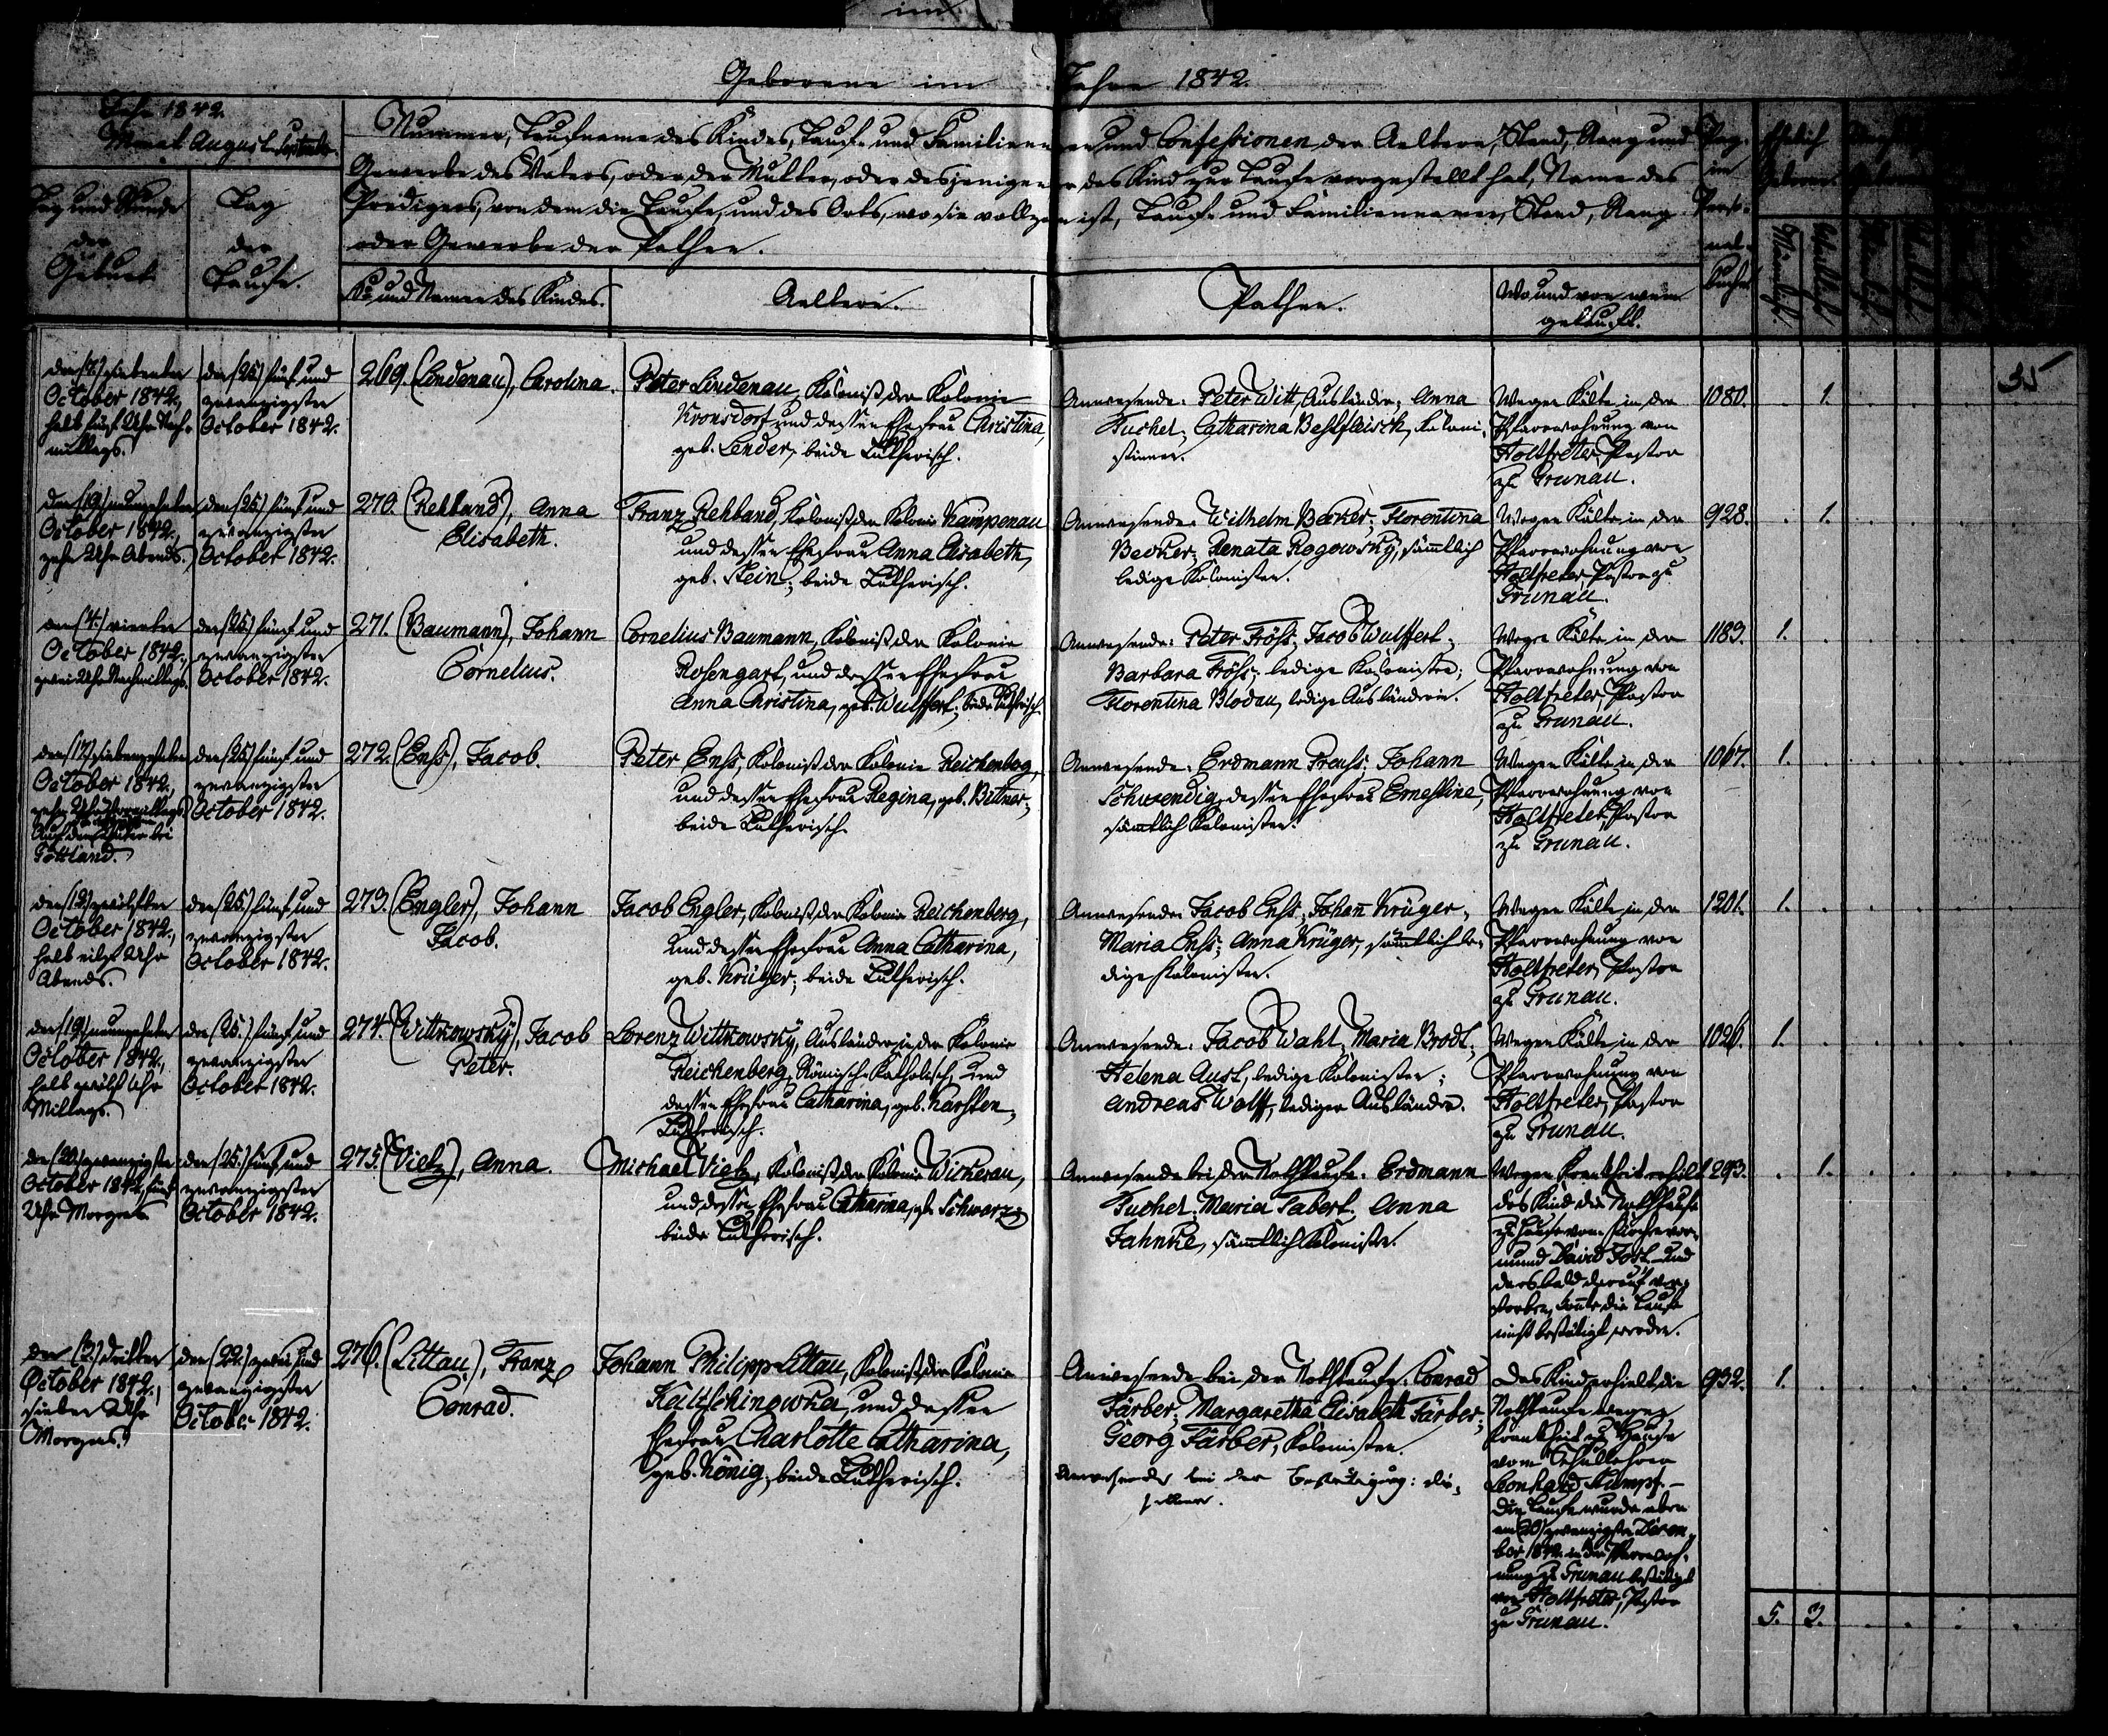 Geborene im Jahre 1842.
Jahr 1842.
Monat August. September.
Tag und Stunde
der
Geburt
Tag
der
Taufe.
Nummer, Taufname des Kindes, Tauf- und Familiennamen und Confessionen der Aeltern, Stand, Rang und
Gewerbe des Vaters, oder der Mutter, oder desjenigen der das Kind zur Taufe vorgestellt hat, Name des
Predigers, von dem die Taufe, und des Orts, wo sie vollzogen ist, Tauf- und Familiennamen, Stand, Rang
oder Gewerbe der Pathen.
No und Namen des Kindes.
Aeltern.
Pathen.
Wo und von wem
getauft.
Pag.
im
Perso-
nal-
Buche
Ehelich
Geboren.
Männlich.
Weiblich.
35
den (7.) siebenten
October 1842.,
halb fünf Uhr Nach-
mittags.
den (25.) fünf und
zwanzigsten
October 1842.
269. (Lindenau), Carolina.
Peter Lindenau, Kolonist der Kolonie
Kronsdorf und dessen Ehefrau Christina,
geb. Lender, beide Lutherisch.
Anwesende: Peter Witt, Ausländer; Anna
Fuchel; Catharina Bestfleisch, Koloni-
stinnen.
Wegen Kälte in der
Pfarrwohnung von
Holtfreter, Pastor
zu Grunau.
1080. . 1. . . . .
den (19.) neunzehnten
October 1842.
zehn Uhr Abends.
den (25.) fünf und
zwanzigsten
October 1842.
270. (Rehband), Anna
Elisabeth.
Franz Rehband, Kolonist der Kolonie Kampenau
und dessen Ehefrau Anna Elisabeth,
geb. Stein; beide Lutherisch.
Anwesende: Wilhelm Becker; Florentina
Becker; Renata Rogowsky, sämmtlich
ledige Kolonisten.
Wegen Kälte in der
Pfarrwohnung von
Holtfreter, Pastor zu
Grunau.
928. . 1. . . . .
den (4.) vierten
October 1842.,
zwei Uhr Nachmittags.
den (25.) fünf und
zwanzigsten
October 1842.
271. (Baumann), Johann
Cornelius.
Cornelius Baumann, Kolonist der Kolonie
Rosengart, und dessen Ehefrau
Anna Christina, geb. Wulffert; beide Lutherisch.
Anwesende: Peter Fröss; Jacob Wulffert;
Barbara Fröss; ledige Kolonisten;
Florentina Blodau, ledige Ausländerin.
Wegen Kälte in der
Pfarrwohnung von
Holtfreter, Pastor
zu Grunau.
1183. 1. . . . . .
den (17.) siebenzehnten
October 1842.,
zehn Uhr Vormittags
Auf dem Felde bei
Göttland.
den (25.) fünf und
zwanzigsten
October 1842.
272. (Enss), Jacob.
Peter Enss, Kolonist der Kolonie Reichenberg,
und dessen Ehefrau Regina, geb. Bittner;
beide Lutherisch.
Anwesende: Erdmann Preuss; Johann
Schwendig, dessen Ehefrau Ernestine,
sämmtlich Kolonisten.
Wegen Kälte in der
Pfarrwohnung von
Holtfreter, Pastor
zu Grunau.
1067. 1. . . . . .
den (12.) zwölften
October 1842.,
halb eilf Uhr
Abends.
den (25.) fünf und
zwanzigsten
October 1842.
273. (Engler), Johann
Jacob.
Jacob Engler, Kolonist der Kolonie Reichenberg,
und dessen Ehefrau Anna Catharina,
geb. Krüger; beide Lutherisch.
Anwesende: Jacob Enss; Johan̅ Krüger;
Maria Enss; Anna Krüger, sämmtlich le-
dige Kolonisten.
Wegen Kälte in der
Pfarrwohnung von
Holtfreter, Pastor
zu Grunau.
1201. 1. . . . . .
den (19.) neunzehnten
October 1842.,
halb zwölf Uhr
Mittags.
den (25.) fünf und
zwanzigsten
October 1842.
274. (Wittkowsky), Jacob
Peter.
Lorenz Wittkowsky, Ausländer in der Kolonie
Reichenberg, Römisch-Katholisch, und
dessen Ehefrau Catharina, geb. Karsten,
Lutherisch.
Anwesende: Jacob Wahl; Maria Brodt;
Helena Aust, ledige Kolonisten;
Andreas Wolff, lediger Ausländer.
Wegen Kälte in der
Pfarrwohnung von
Holtfreter, Pastor
zu Grunau.
1026. 1. . . . . .
den (20.) zwanzigsten
October 1842, fünf
Uhr Morgens
den (25.) fünf und
zwanzigsten
October 1842.
275. (Vietz), Anna.
Michael Vietz, Kolonist der Kolonie Wickerau,
und dessen Ehefrau Catharina, geb. Schwarz;
beide Lutherisch.
Anwesende bei der Nothtaufe: Erdmann
Fuchel; Maria Tabert; Anna
Jahnke, sämmtlich Kolonisten.
Wegen Krankheit erhielt
das Kind die Nothtaufe
zu Hause vom Kirchenvor-
mund David Jost und
da es bald darauf ver-
storben, konnte die Taufe
nicht bestätigt werden.
293. . 1. . . . .
den (3.) dritten
October 1842.,
sieben Uhr
Morgens.
den (22.) zwei und
zwanzigsten
October 1842.
276. (Littau), Franz
Conrad.
Johann Philipp Littau, Kolonist der Kolonie
Kaltschinowka, und dessen
Ehefrau Charlotte Catharina,
geb. König; beide Lutherisch.
Anwesende bei der Nothtaufe: Conrad
Färber; Margaretha Elisabeth Färber;
Georg Färber, Kolonisten.
Anwesende bei der Bestätigung: die-
selben.
Das Kind erhielt die
Nothtaufe wegen
Krankheit zu Hause
vom Schullehrer
Leonhard Stumpf. –
Die Taufe wurde aber
am (20) zwanzigsten Decem-
ber 1842. in der Pfarrwoh-
nung zu Grunau bestätigt
von Holtfreter, Pastor
zu Grunau.
932. 1. . . . . .
5. 3. . . . .